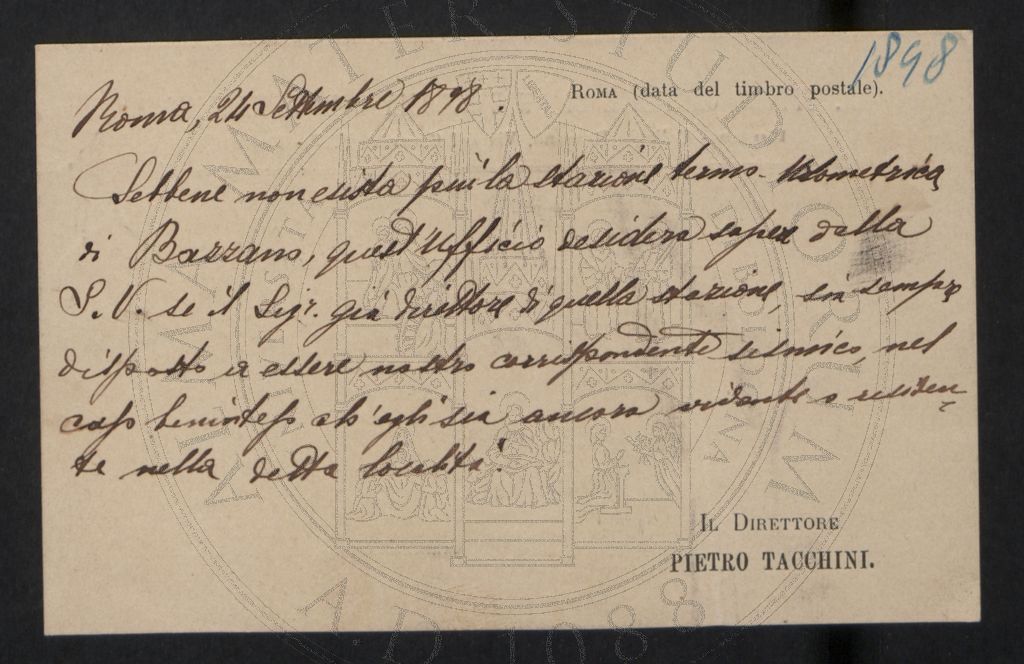 1898
Roma (data del timbro postale).
Roma, 24 Settembre 1898.
Sebbene non esista più la stazione termo-udometrica
di Bazzano, quest'Ufficio desidera sapere dalla
S. V. se il Sigr. già direttore di quella stazione, sia sempre
disposto a essere nostro corrispondente sismico, nel
caso beninteso ch'egli sia ancora vivente e residen-
te nella detta località.
Il Direttore
PIETRO TACCHINI.
ALMA MATER STUDIORUM
A.D. 1088